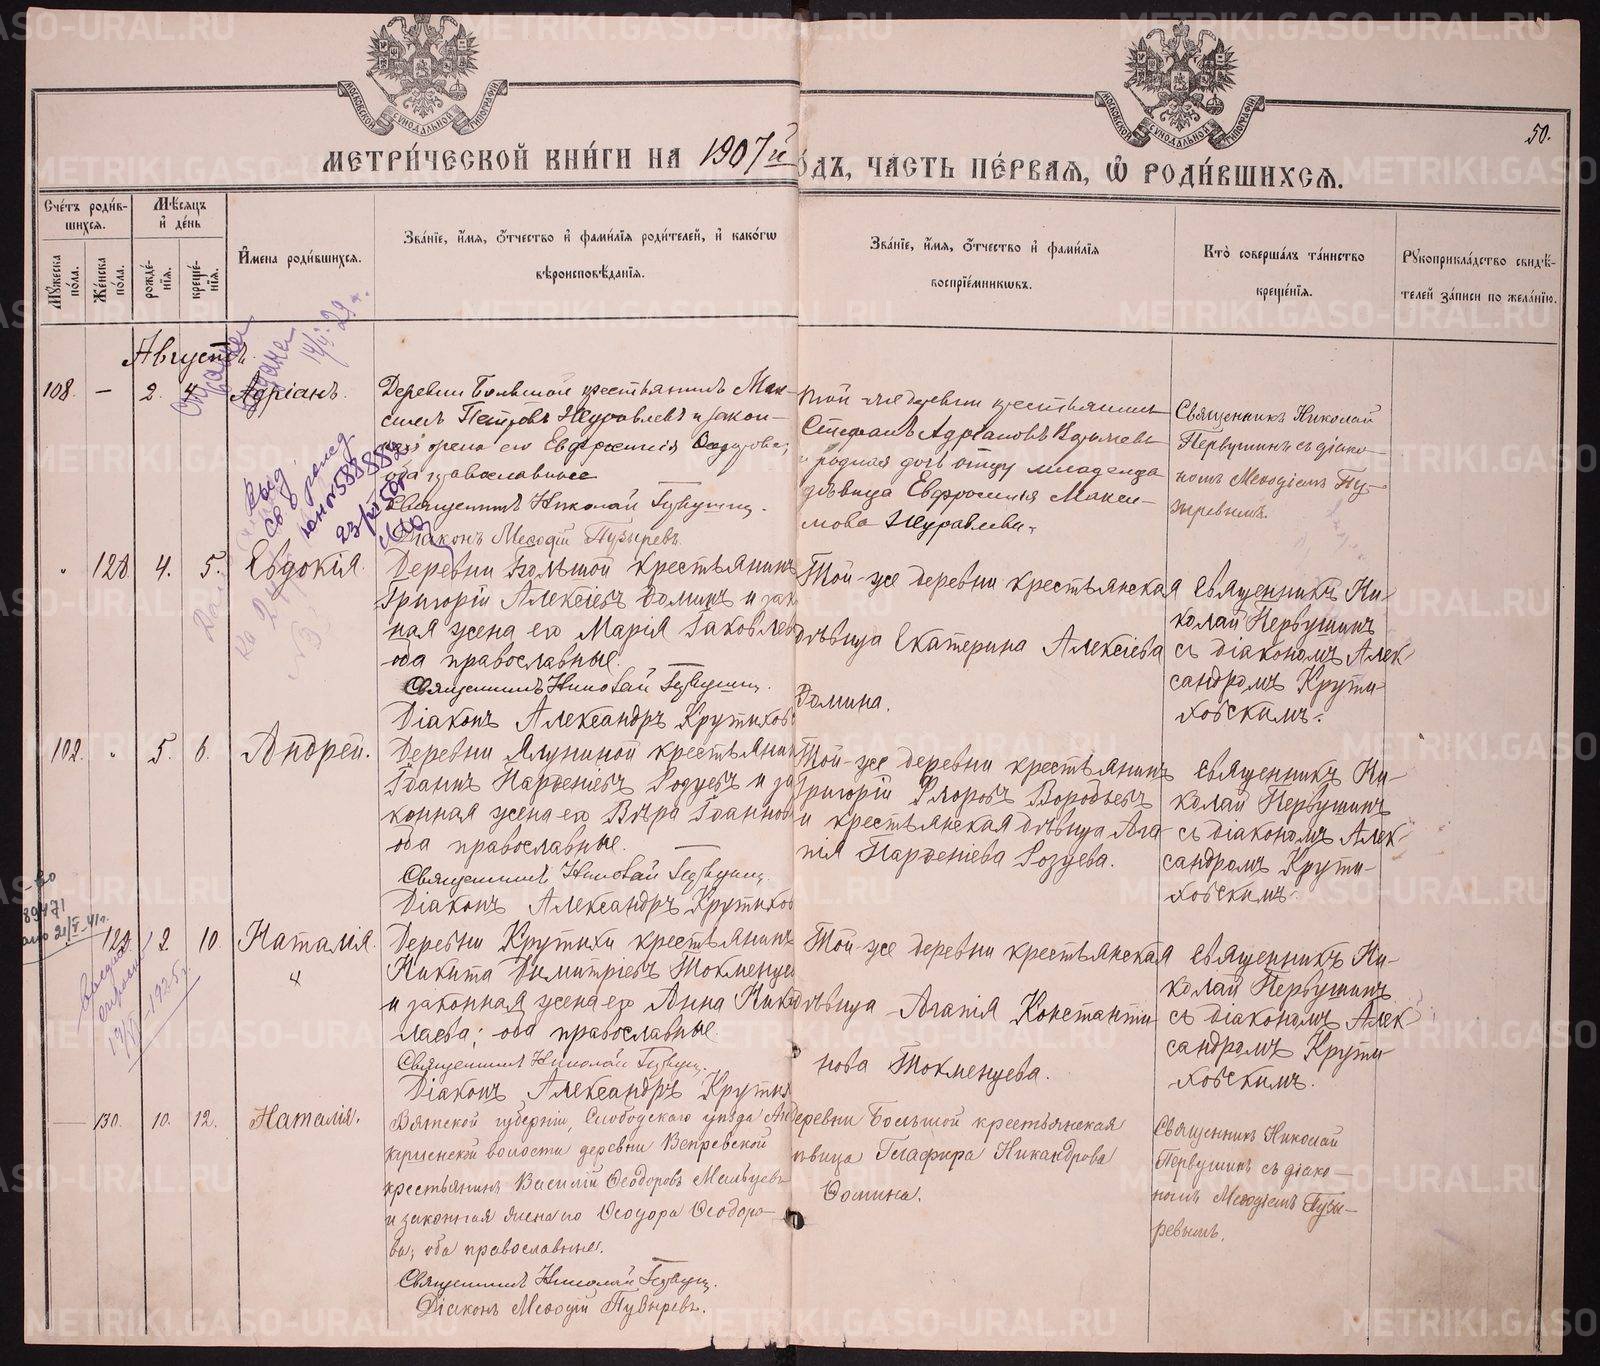 50.
МЕТРИ́ЧЕСКОЙ КНИ́ГИ НА 1907й
ГО́ДЪ, ЧА́СТЬ ПЕ́РВАЯ, Ѽ РОДИ́ВШИХСЯ.
Сче́тъ роди́в-
шихся.
Мѣ́сяцъ
и҆ де́нь
Мꙋ́жеска по́ла.
Же́нска по́ла.
рожде́-
нїѧ.
креще́-
нїѧ.
И҆мена роди́вшихся.
Зва́нїе, и҆́мѧ, ѻ҆́тчество и҆ фами́лїѧ роди́телей, и҆ како́гѡ
вѣроисповѣ́данїѧ.
Зва́нїе, и҆́мѧ, ѻ҆́тчество и҆ фами́лїѧ
воспрїе́мникѡвъ.
Кто̀ соверша́лъ та́инство
креще́нїѧ.
Рꙋкоприкла́дство свидѣ́-
телей за́писи по жела́нїю.
Августъ.
108. — 2. 4. Адріанъ.
Деревни Большой крестьянинъ Мак-
симъ Петровъ Журавлевъ и закон-
жена его Евфросинія
оба православные
Священникъ Николай Первушинъ.
Діаконъ Меѳодій Пузыревъ.
Той-же деревни крестьянинъ
Стефанъ Адріановъ
родная дочь отцу младенца
дѣвица Евфросинія Макси-
мова Журавлева.
Священникъ Николай
Первушинъ съ діако-
номъ Меѳодіемъ Пу-
зыревымъ.
" 128 4. 5. Евдокія.
Деревни Большой крестьянинъ
Григорій Алексіевъ Ѳоминъ и закон
ная жена его Марія Іаковлева
оба православные.
Священникъ Николай Первушинъ.
Діаконъ Александръ Крутиховъ
Той-же деревни крестьянская
дѣвица Екатерина Алексіева
Ѳомина.
Священникъ Ни-
колай Первушинъ
съ діакономъ Алек-
сандромъ Крути-
ховскимъ.
102. " 5. 6. Андрей.
Деревни Ялуниной крестьянин
Іоаннъ Парѳеніевъ Розуевъ и за
конная жена его Вѣра Іоаннов
оба православные.
Священникъ Николай Первушинъ.
Діаконъ Александръ Крутихов
Той-же деревни крестьянинъ
Григорій Флоровъ Воробьевъ
и крестьянская дѣвица Ага-
пія Парѳеніева Розуева.
Священникъ Ни-
колай Первушинъ
съ діакономъ Алек-
сандромъ Крути-
ховскимъ.
129 2 10. Наталія.
Деревни Крутихи крестьянинъ
Никита Димитріевъ Токменцев
и законная жена его Анна Нико
лаева; оба православные
Священникъ Николай Первушинъ.
Діаконъ Александръ Крутих
Той-же деревни крестьянская
дѣвица Агапія Константи-
нова Токменцева.
Священникъ Ни-
колай Первушинъ
съ діакономъ Алек-
сандромъ Крути-
ховскимъ.
— 130. 10. 12. Наталія.
Вятской губерніи, Слободскаго уѣзда
волости деревни Вепревской
крестьянинъ Василій Ѳеодоровъ Мальцевъ
и законная жена его Ѳеодора Ѳеодоро-
ва; оба православные.
Священникъ Николай Первушинъ.
Діаконъ Меѳодій Пузыревъ.
Деревни Большой крестьянская
дѣвица Глафира Никандрова
Ѳомина.
Священникъ Николай
Первушинъ съ діако-
номъ Меѳодіемъ Пузы-
ревымъ.
METRIKI.GASO-URAL.RU